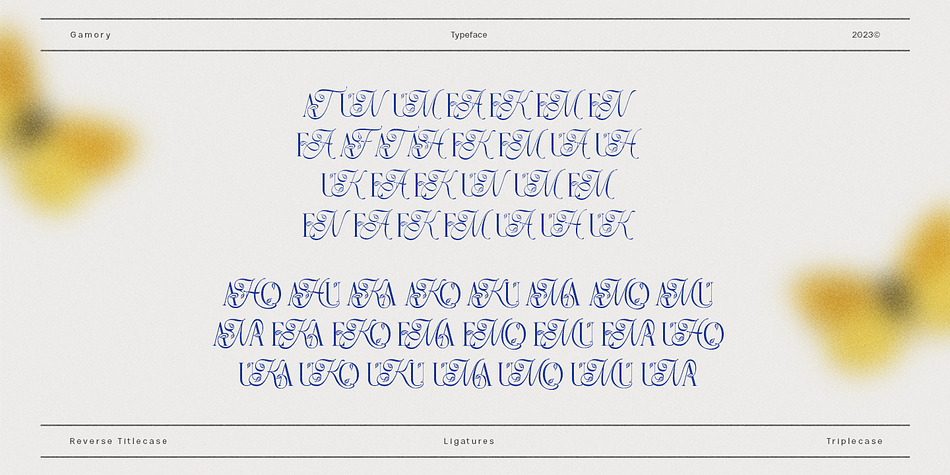 Gamory Typeface 2023©
AT UN UM EA EK EM EN
FA AF AT AH EK EM UA UH
UK EA EK UN UM FM
EN FA FK FM UA UH UK
AHO AHU AKA AKO AKU AMA AMO AMU
ANA EKA EKO EMA EMO EMU ENA UHO
UKA UKO UKU UMA UMO UMU UNA
Reverse Titlecase Ligatures Triplecase